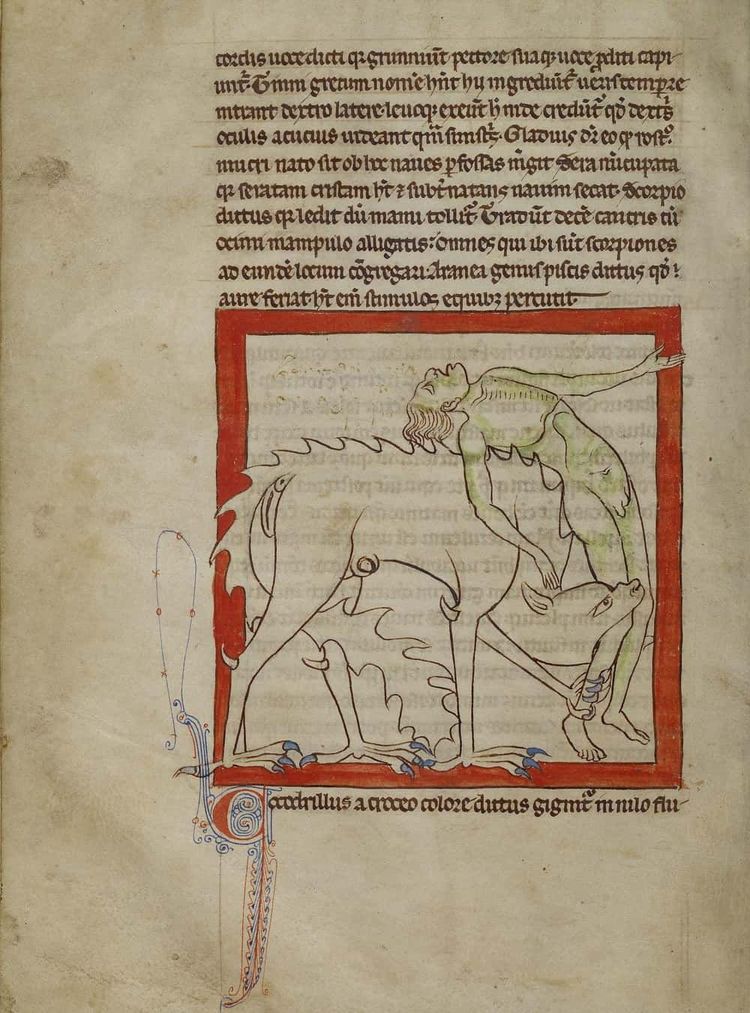 cordis uoce dicti qr grunniunt pectore sua qꝫ uoce proditi capi-
unt̄. Tȳnni gretum nom̄e hn̄t hȳ ingrediunt̄ ueris tempore
intrant dextro latere. leuoqꝫ exeunt hȳ inde credunt̄ qd̄ dextrꝭ
oculis acucius uideant qm̄ sinistꝭ. Gladius dr̄ eo qꝙ rost̄.
mucrōnato sit ob hoc naues perfossas mergit Serra nūcupata
qr serratam cristam hȳ ⁊ subt̄ natans nauim secat. Scorpio
dictus qr ledit dū manu tollit̄. Tradūt decē cancris cū
ocimi manipulo alligatis: Omnes qui ibi sūt scorpiones
ad eundē locum cōgregari. Aranea genus piscis dictus qd̄ ī
aure feriat hȳ em̄ stimulos equibꝫ percutit
Cocodrillus a croceo colore dictus gignit̄ in nilo flu-